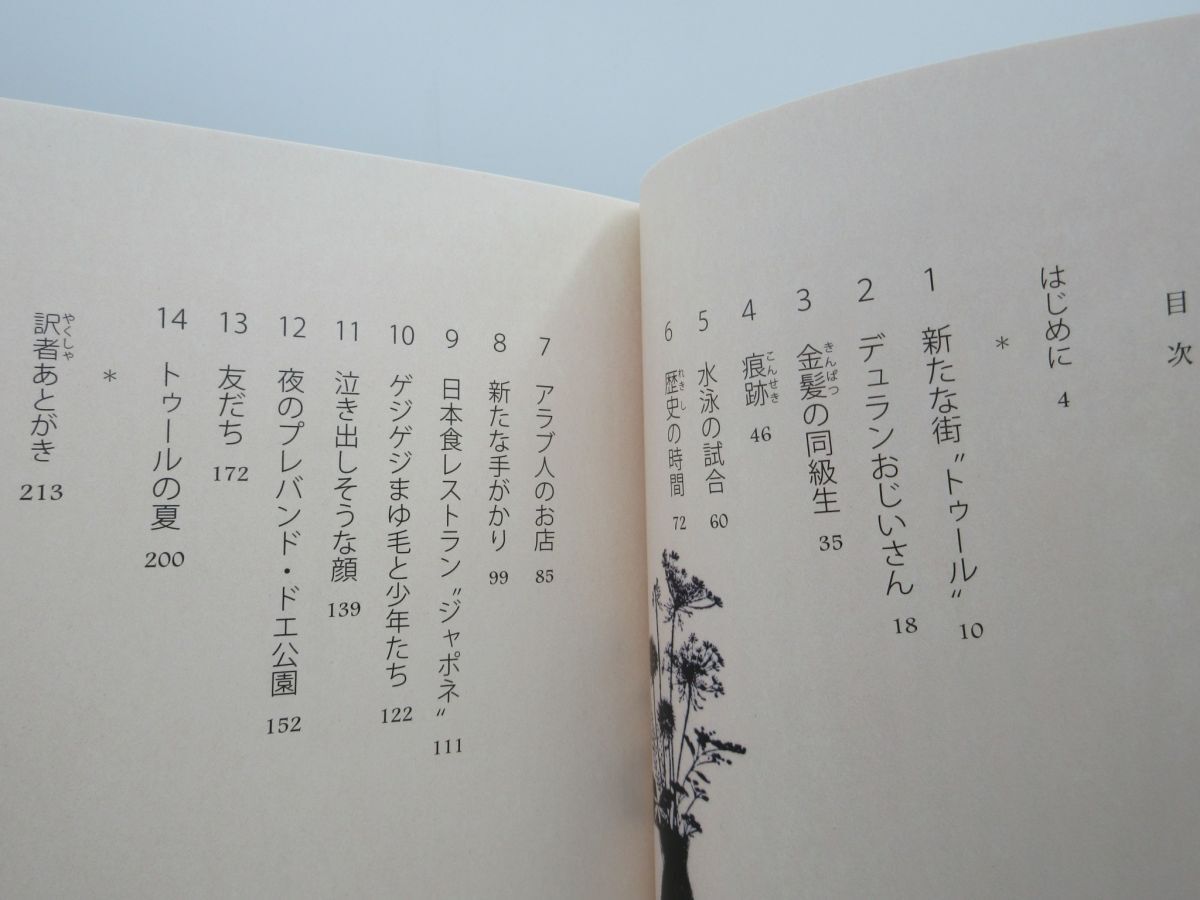 目次
はじめに 4
*
1 新たな街〝トゥール〟 10
2 デュランおじいさん 18
3 金髪の同級生 35
きんぱつ
4 痕跡 46
こんせき
5 水泳の試合 60
6 歴史の時間 72
れきし
7 アラブ人のお店 85
8 新たな手がかり 99
9 日本食レストラン〝ジャポネ〟 111
10 ゲジゲジまゆ毛と少年たち 122
11 泣き出しそうな顔 139
12 夜のプレバンド・ドエ公園 152
13 友だち 172
14 トゥールの夏 200
*
訳者あとがき 213
やくしゃ